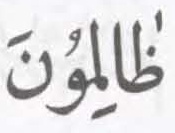 ظَالِمُوْنَ